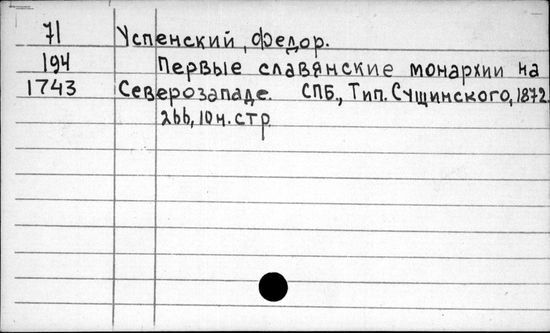 71 Успенский, Федор.
194 Первые славянские монархии на
1743 Северозападе. СПБ., Тип. Сущинского, 1872.
266, 10 н. стр.